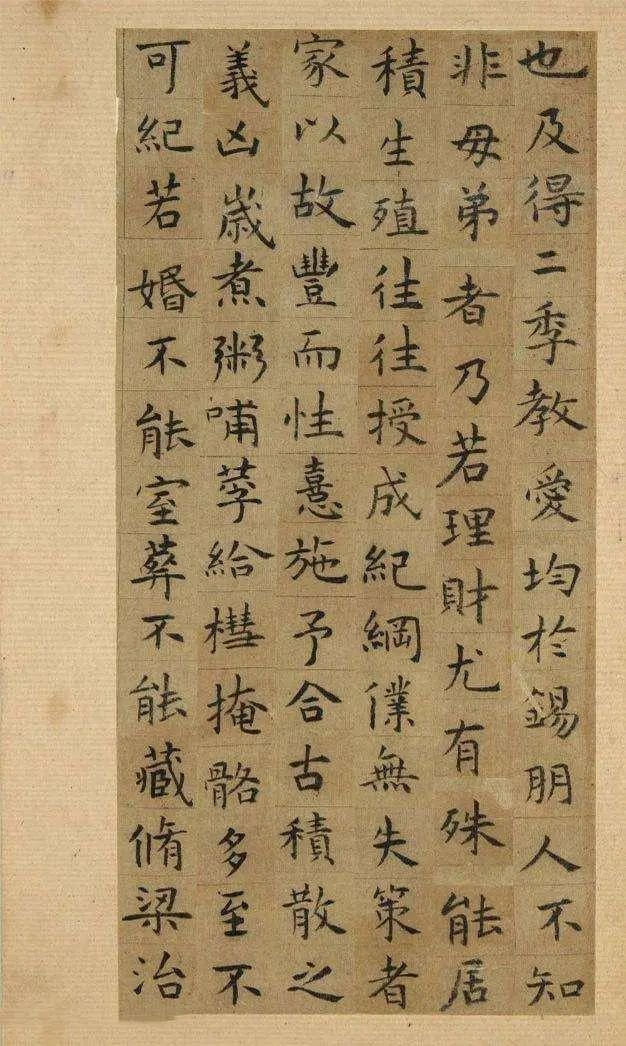 也及得二季教愛均於錫朋人不知
非母弟者乃若理財尤有殊能居
積生殖往往授成紀綱僕無失策者
家以故豐而性憙施予合古積散之
義凶歲煮粥哺莩給槥掩骼多至不
可紀若婚不能室葬不能藏脩梁治